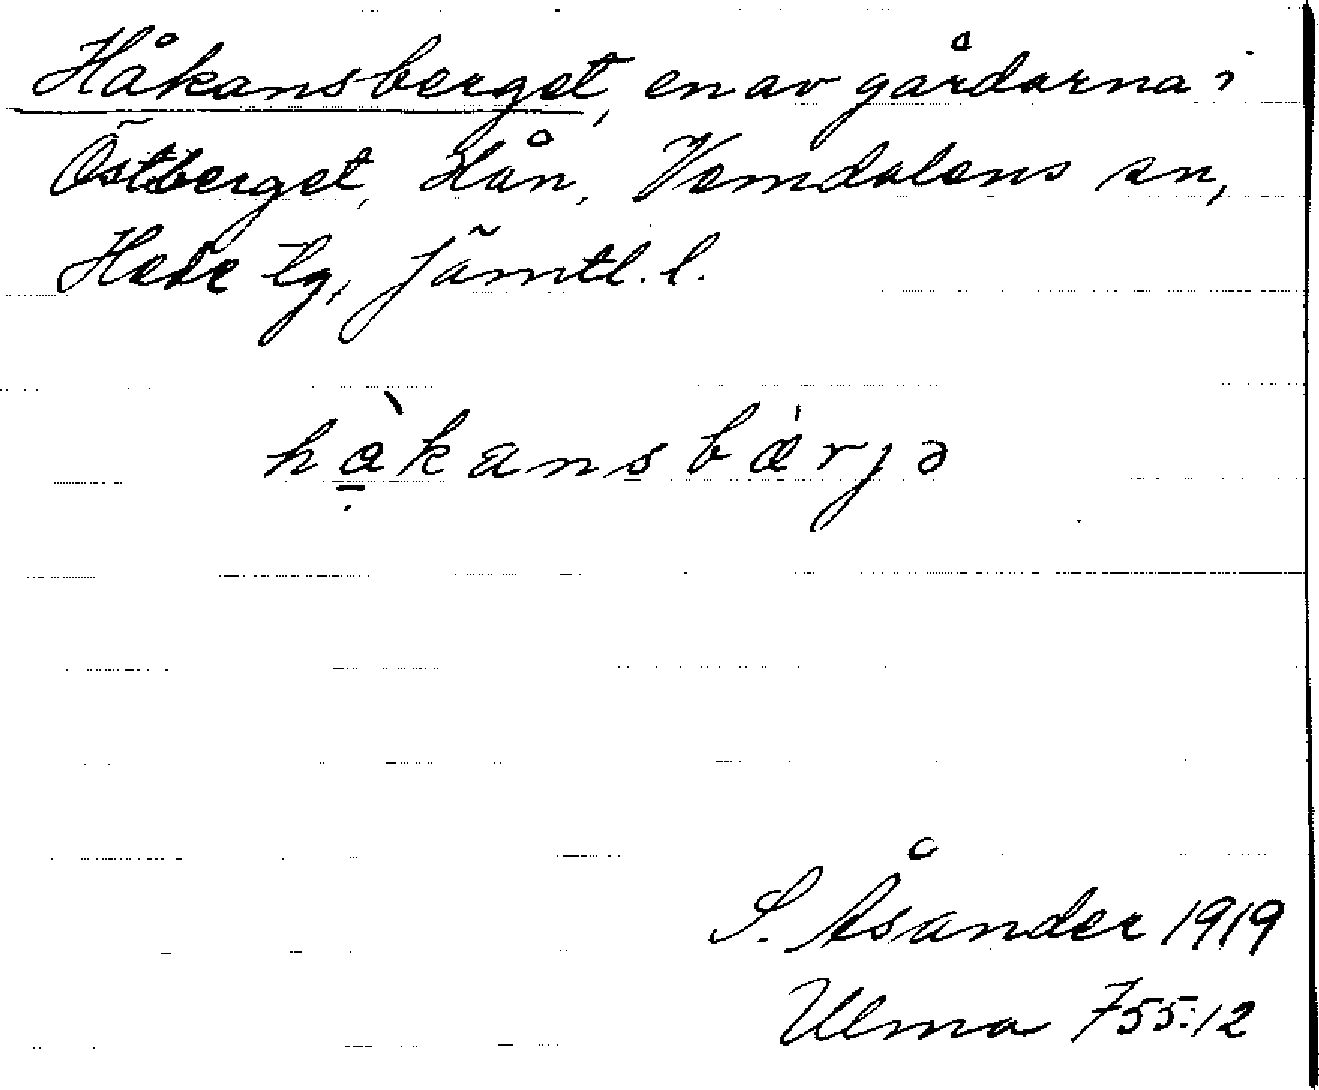 Håkansberget, en av gårdarna i
Östberget, Hån, Vemdalens sn,
Hede tg, Jämtl. l.
hå̀kansbærjə
S. Åsander 1919
Ulma 755:12